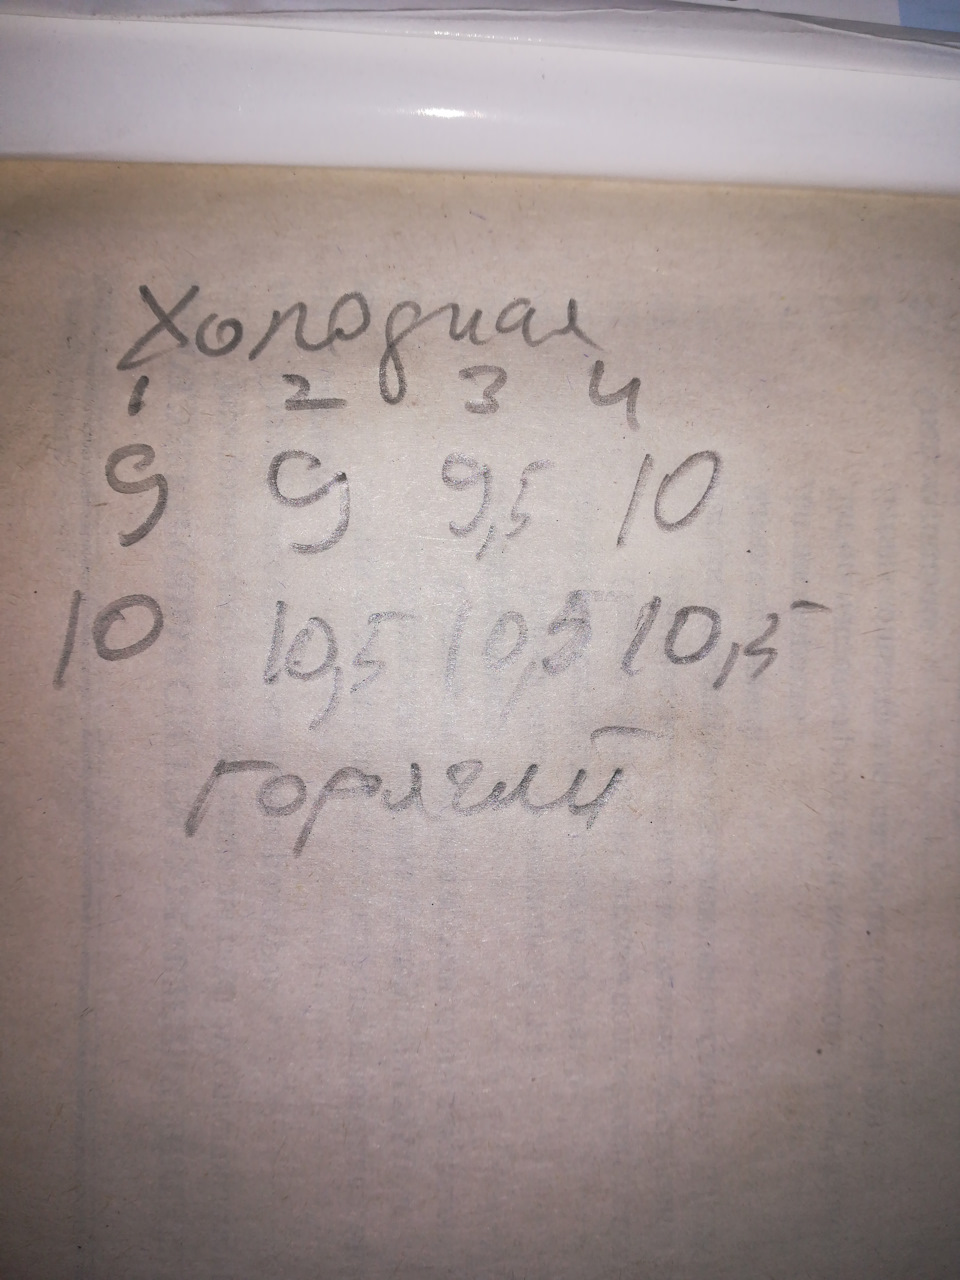 Холодная
1 2 3 4
9 9 9,5 10
10 10,5 10,5 10,5
горячий